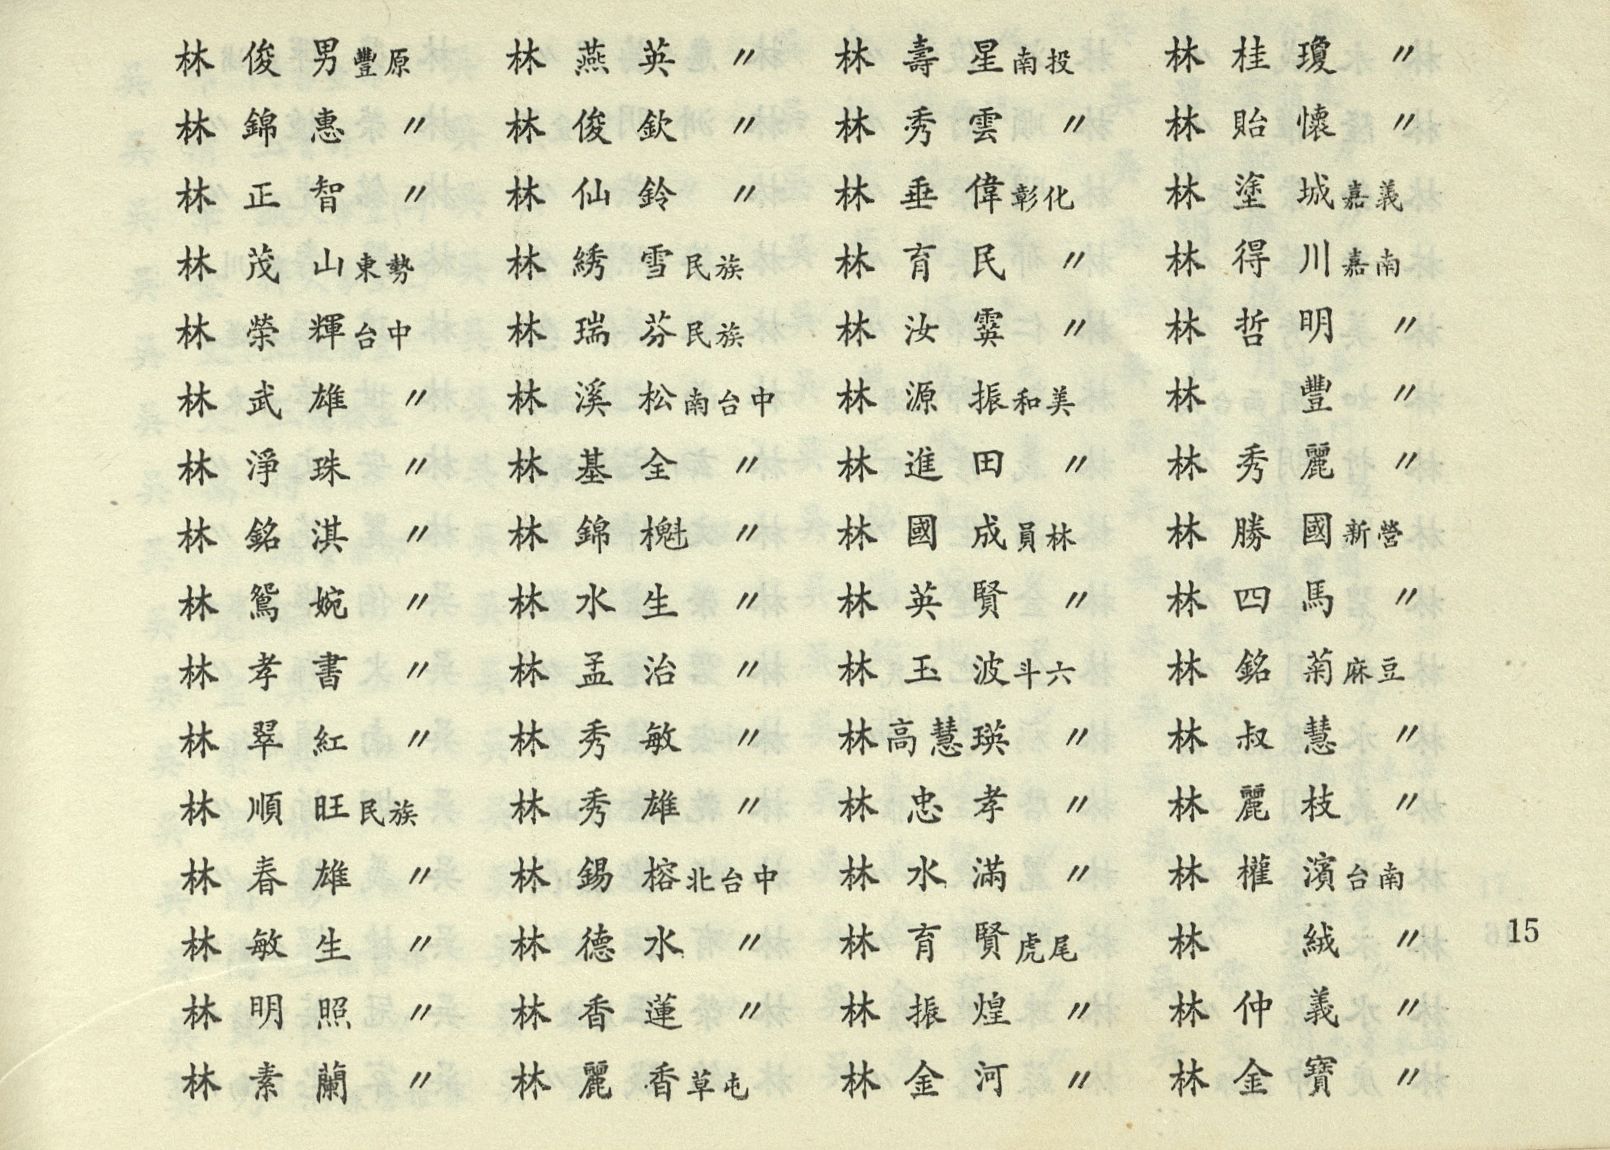 林俊男豐原 林燕英〃 林壽星南投 林桂瓊〃
林錦惠〃 林俊欽〃 林秀雲〃 林貽懷〃
林正智〃 林仙鈴〃 林垂偉彰化 林塗城嘉義
林茂山東勢 林綉雪民族 林育民〃 林得川嘉南
林榮輝台中 林瑞芬民族 林汝霙〃 林哲明〃
林武雄〃 林溪松南台中 林源振和美 林豐〃
林淨珠〃 林基全〃 林進田〃 林秀麗〃
林銘淇〃 林錦櫆〃 林國成員林 林勝國新營
林鴛婉〃 林水生〃 林英賢〃 林四馬〃
林孝書〃 林孟治〃 林玉波斗六 林銘菊麻豆
林翠紅〃 林秀敏〃 林高慧瑛〃 林叔慧〃
林順旺民族 林秀雄〃 林忠孝〃 林麗枝〃
林春雄〃 林錫榕北台中 林水滿〃 林權濱台南
林敏生〃 林德水〃 林育賢虎尾 林絨〃
15
林明照〃 林香蓮〃 林振煌〃 林仲義〃
林素蘭〃 林麗香草屯 林金河〃 林金寶〃